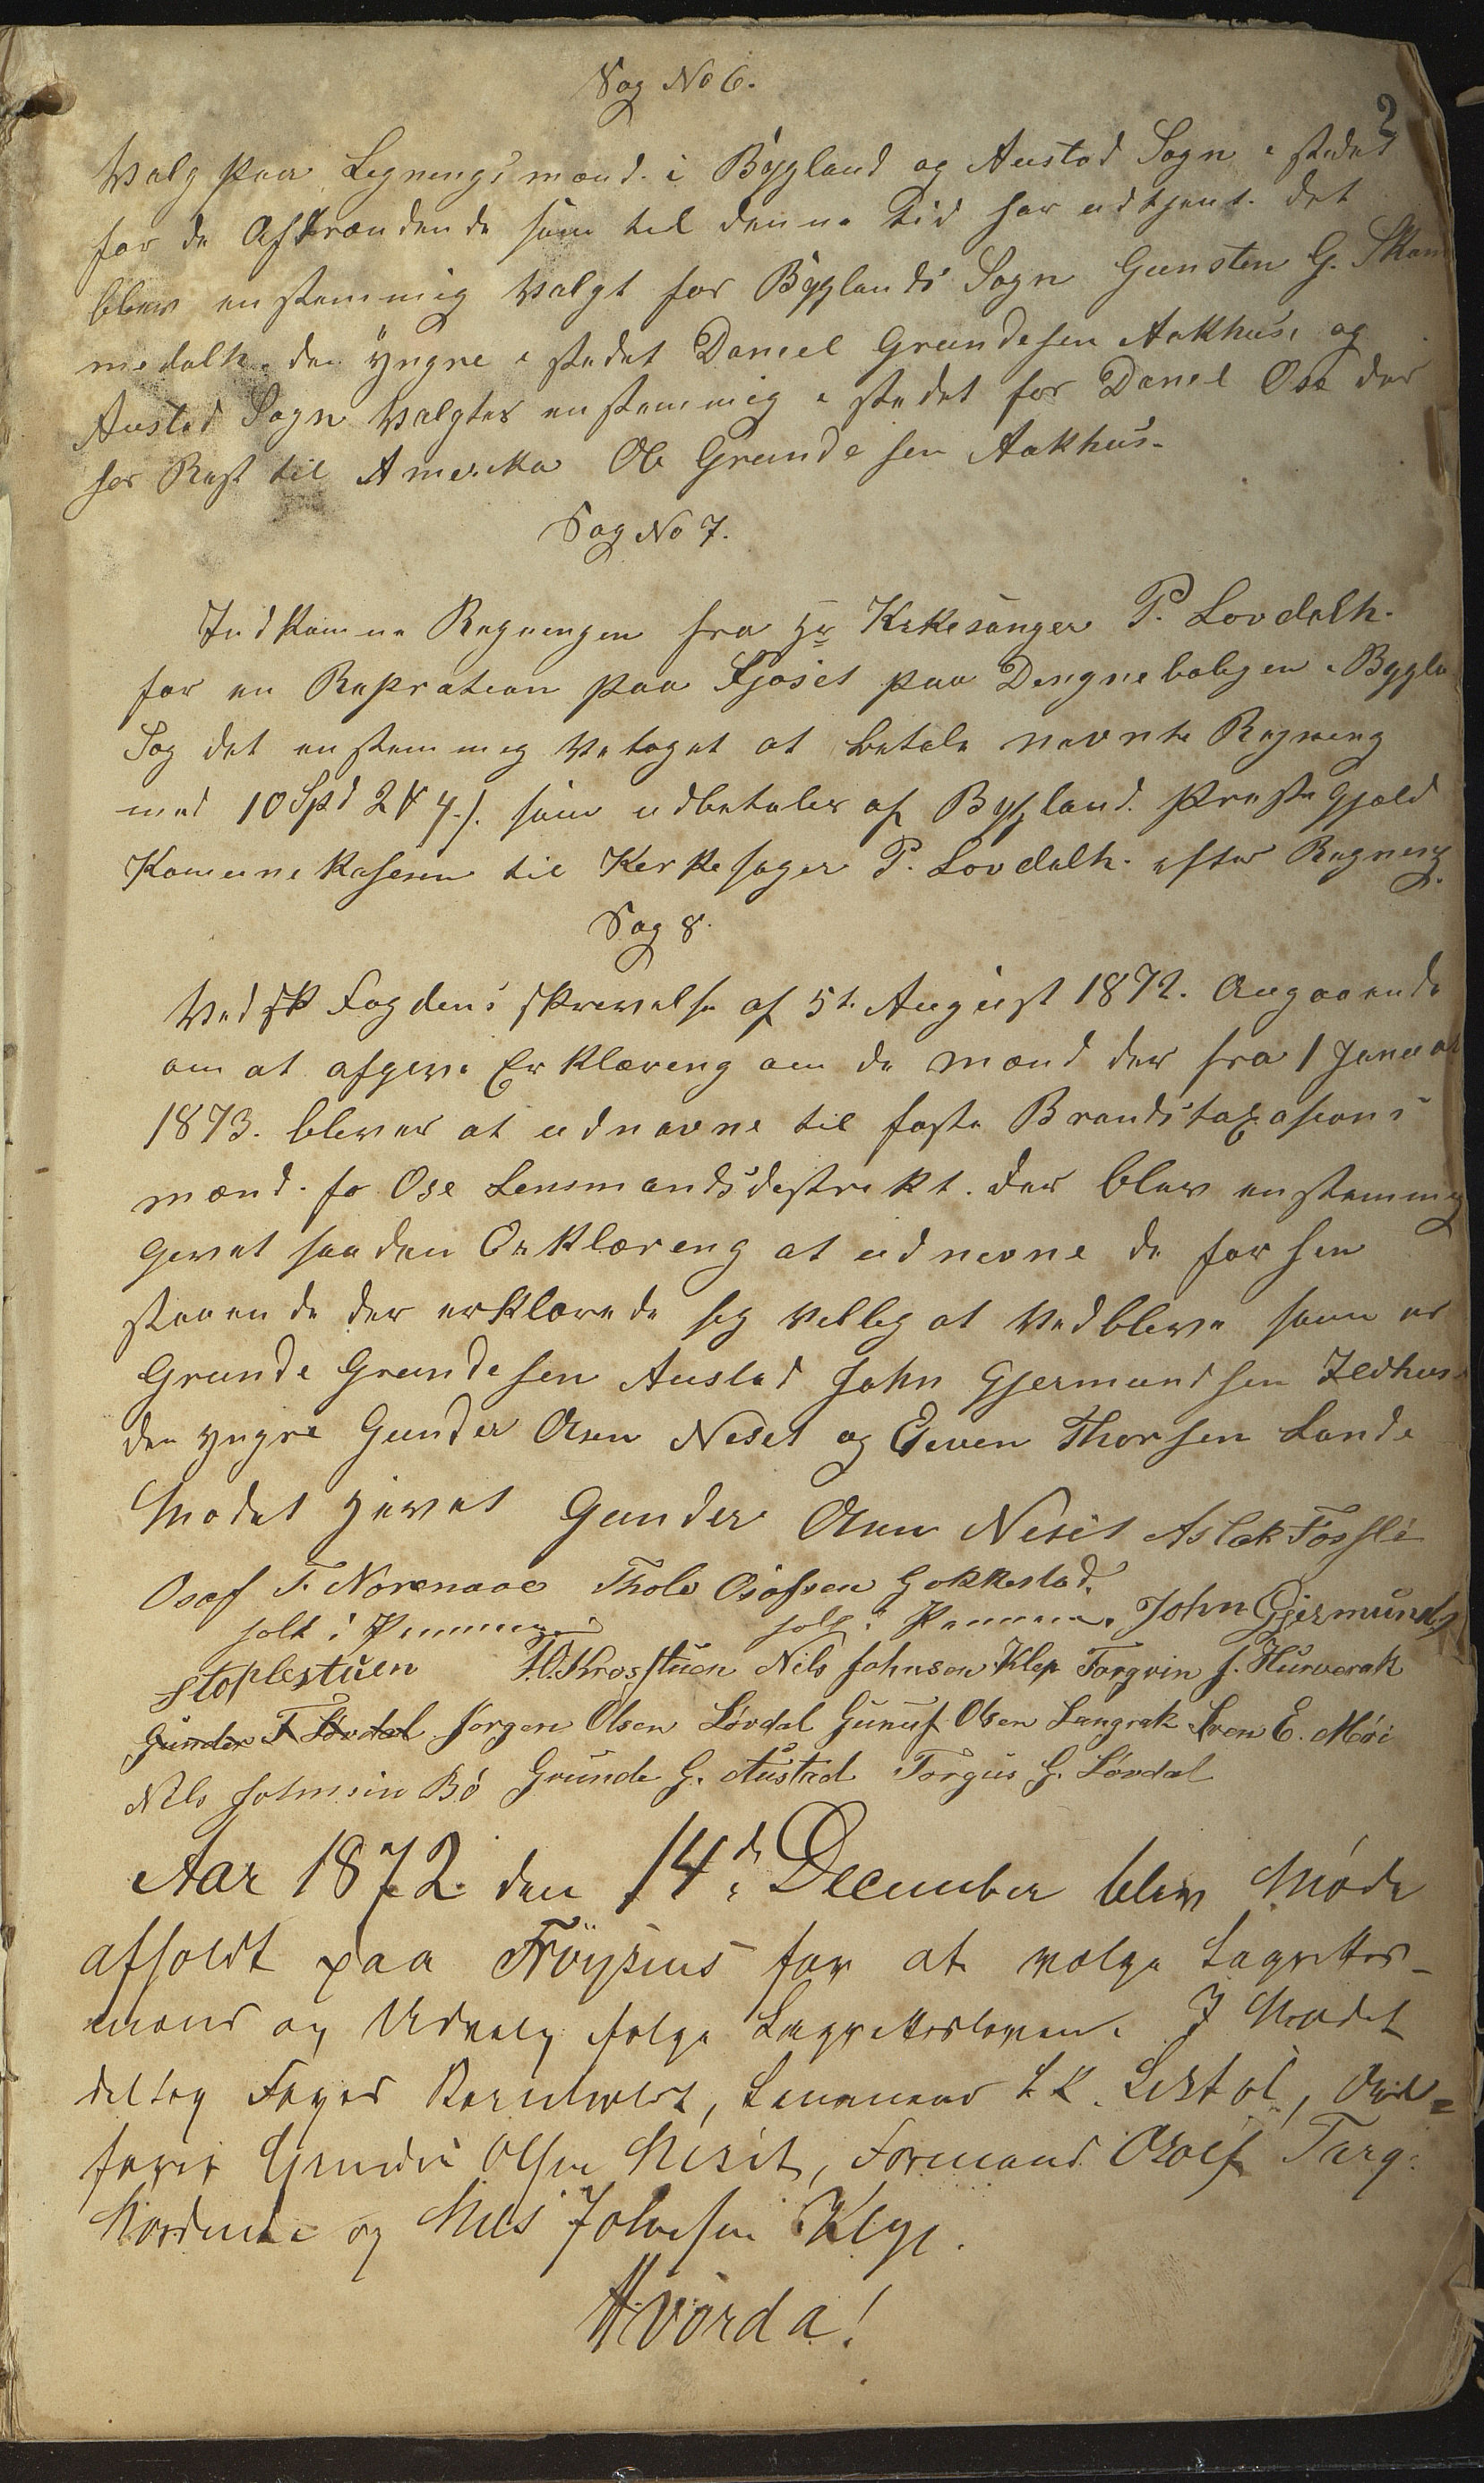 Sag No 6.
2
Valg paa Legningsmænd i Bygland og Austad Sogn i stedet
for de Aftrædende som til denne tid har udtjent. det
blev enstemmig Valgt for Byglands Sogn Gunsten G. Skom
medalh. den Yngre i stedet Daniel Grundesen Aakhus, og
Austad Sogn Valgtes enstemmig i stedet for Daniel Ose der
har Rest til Amerika Ole Grundesen Aakhus.
Sag No 7.
Indkomne Regningen fra Hr Kirkesanger P. Lovdalh.
for en Repration paa Fjøset paa Dengneboligen i Bygla
Sog det enstemmig Vetaget at betale nævnte Regning
med 10 Spd 2 # 4 s. som udbetales af Bygland Prestegjæld
Komunekassen til Kerkesager P. Lovdalh. efter Regning.
Sag 8.
Ved Fogdens skrevelse af 5t August 1872. Angaaende
om at afgive Erklæreng om de mænd der fra 1 Januar
1873. blever at udnævne til faste Brandstaxasions
mænd. fo Ose Lensmandsdestrekt. der blev enstemmig
Gevet saaden Erklæreng at udnevne de forhen
staaende der erklærede seg velleg at Vedbleve som er
Grunde Grundesen Austad John Gjermundsen
den yngre Gunder Olsen Neset og Even Thorsen Lande
Mødet Hevet Gunder Olsen Neset Aslak Fossli
Osof T. Norenaae Thole Osofsen Gakkestad.
holt i Pennen holt i Pennen. John Gjermunds
Stoplestuen H. Krosstuen Nils Johnson Klep Torgrin J. Hurverak
Gunder T Løvdal Jørgen Olsen Løvdal Gunuf Olsen Langrak Sven E. Mói
Nils Johnsen Bø Grunde G. Austad Torgus G. Løvdal
Aar 1872 den 14de December blev Møde
afholdt paa Frøysnes for at vælge Lagrettes-
mænd og Udvalg ifølge Lagretteloven. I Mødet
deltog Foged, Lensmand, Ord=
fører Gunder Olsen Neset, Formand Osolf Targ.
og Nils Johnsen Klep.
Hvorda!